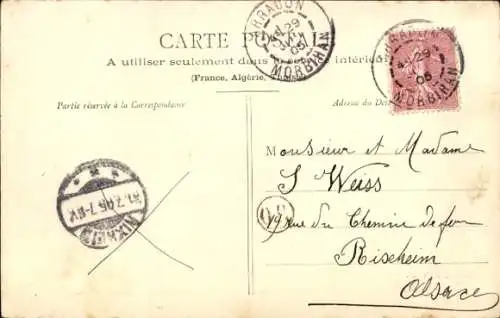 CARTE POSTALE
A utiliser seulement dans le service intérieur
(France, Algérie, Tunisie)
Partie réservée à la Correspondance
Adresse du Destinataire
ARRADON
29
05
MORBIHAN
ARRADON
29
05
MORBIHAN
Monsieur et Madame
S Weiss
19 rue du Chemin de fer
Rixheim
Alsace
RIXHEIM